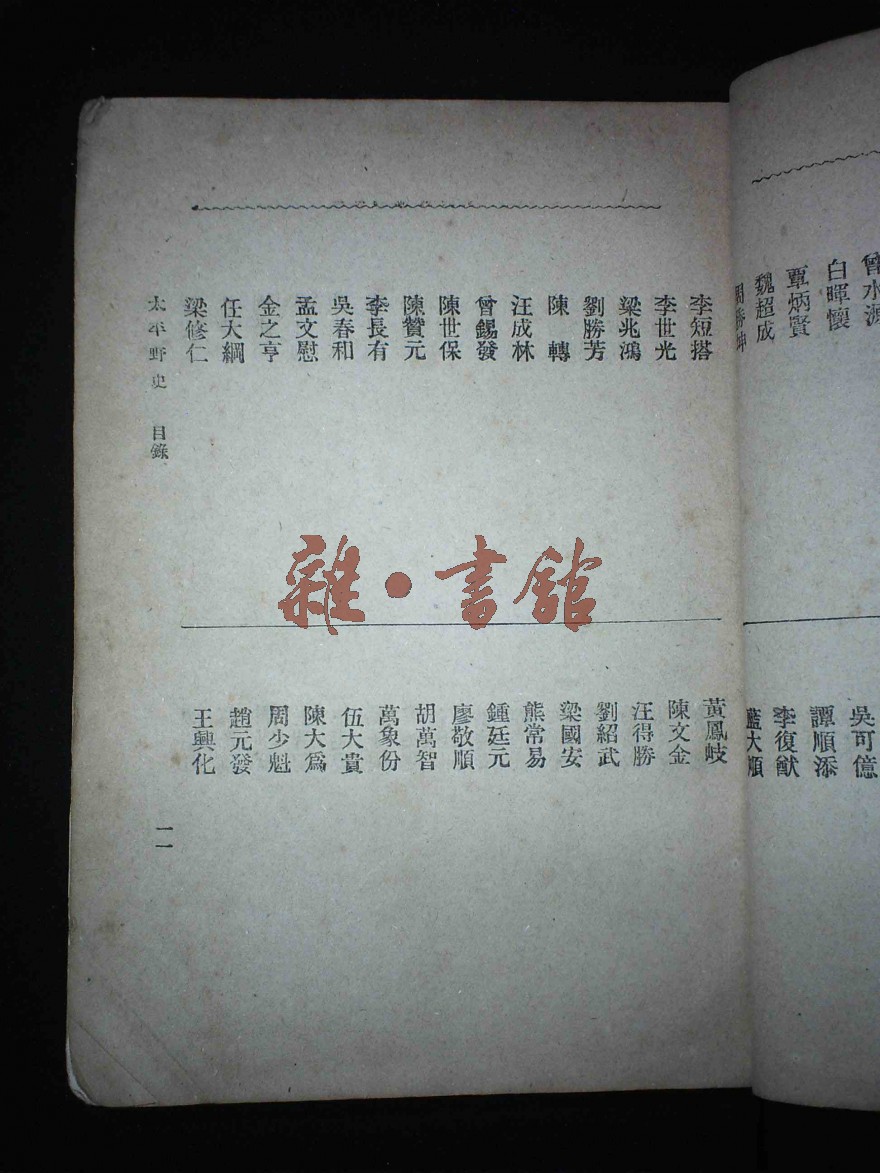 曾水源
白暉懷
覃炳賢
魏超成
周勝坤
吳可億
譚順添
李復猷
藍大順
李短搭
李世光
梁兆鴻
劉勝芳
陳 轉
汪成林
曾錫發
陳世保
陳贊元
李長有
吳春和
孟文慰
金之亨
任大綱
梁修仁
黃鳳岐
陳文金
汪得勝
劉紹武
梁國安
熊常易
鍾廷元
廖敬順
胡萬智
萬象份
伍大貴
陳大為
周少魁
趙元發
王興化
太平野史 目錄
一一
雜·書館